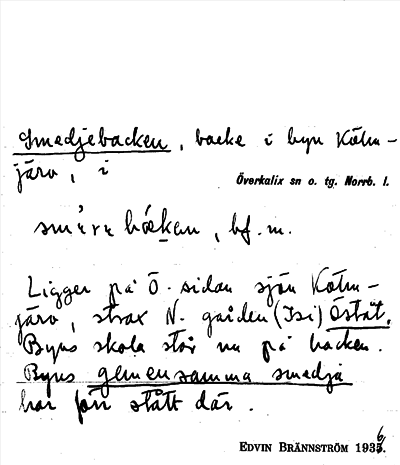 Smedjebacken, backe i byn Kölm-
järv, i
Överkalix sn o. tg. Norrb. l.
bf. m.
Ligger på Ö. sidan sjön Kölm-
järv, strax N. gården (Isi) Östat.
Byns skola står nu på backen.
Byns gemensamma smedja
har förr stått där.
EDVIN BRÄNNSTRÖM 1936.